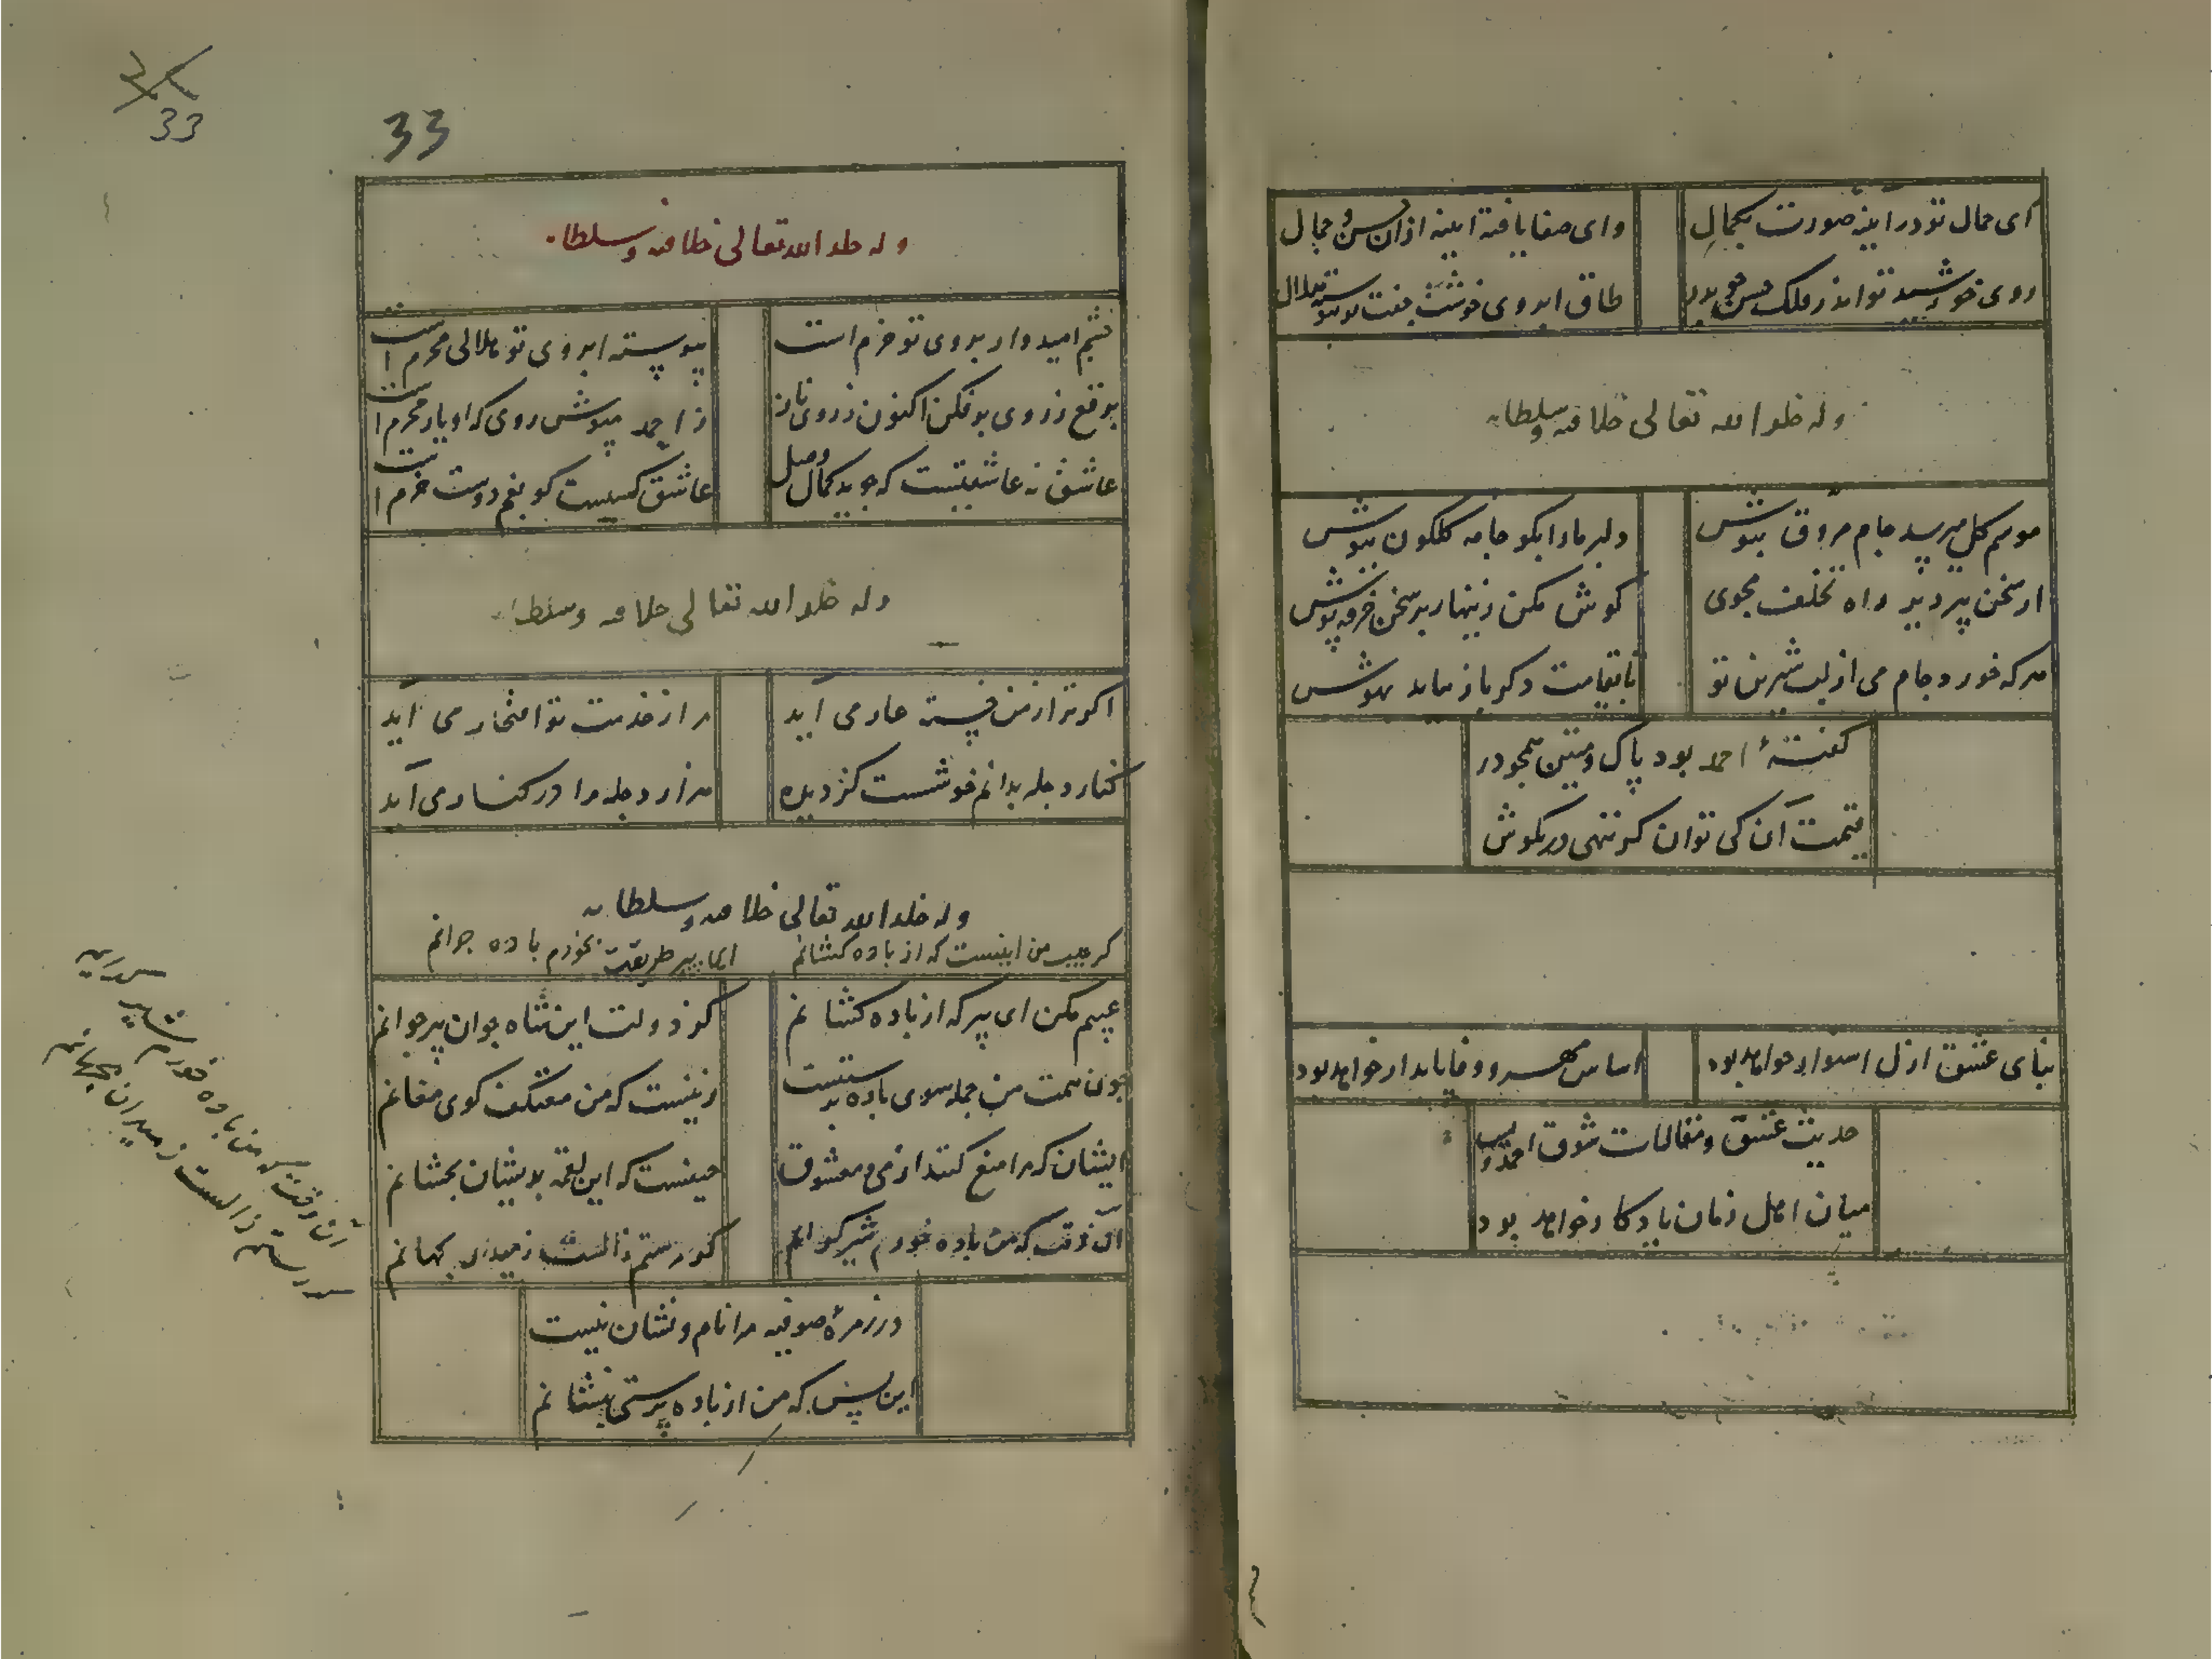 ای جمال تو در اینه صورت بکمال
وای صفا یافته اینه ازان حسن و جمال
روی خورشید تو اندر فلک حسن چو بدر
طاق ابروی خوشت جفت
وله خلد الله تعالی خلافه وسلطانه
موسم کل میرسد جام مروق بنوش
دلبر ما را بکو جامه کلکون بپوش
از سخن پیر دیر راه تخلف مجوی
کوش مکن زینهار بر سخن خرقه پوش
هرکه خورد جام می از لب شیرین تو
تا بقیامت دکر باز نیاید بهوش
کفتهٔ احمد بود پاک و متین همچو در
قیمت آن کی توان کر ننهی در بکوش
بنای عشق ازل استوار خواهد بود
اساس مهر و وفا پایدار خواهد بود
حدیث عشق و مقالات شوق احمد
میان اهل زمان یادکار خواهد بود
33
33
وله خلد الله تعالی خلافه وسلطانه
چشم امیدوار بروی تو خرم است
پیوسته ابروی تو هلالی محرم است
برقع ز روی برفکن اکنون ز روی ناز
ز احمد مپوش روی که او یار محرم است
عاشق نه عاشقیست که جوید کمال وصل
عاشق کسیست کو بغم دوست خرم است
وله خلد الله تعالی خلافه وسلطانه
اکر ترا ز من خسته عار می آید
مرا ز خدمت تو افتخار می آید
کنار دجله بدانم خوشست کز دیده
هزار دجله مرا در کنار می آید
وله خلد الله تعالی خلافه وسلطانه
کر عیب من اینست که از باده کشانم
ای پیر طریقت نخورم باده جوانم
عیبم مکن ای پیر که از باده کشانم
کز دولت این شاه جوان پیر جوانم
چون همت من جمله سوی باده پرستیست
زینست که من معتکف کوی مغانم
ایشان که مرا منع کنند از می و معشوق
حیفست که این لقمه بدیشان بچشانم
آن وقت که من باده خورم شیر
کو رستم زالست ز میدان بجهانم
در زمرهٔ صوفیه مرا نام و نشان نیست
این بس که من از باده پرستی بنشانم
آن وقت که من باده خورم
رستم زالست ز میدان بجهانم